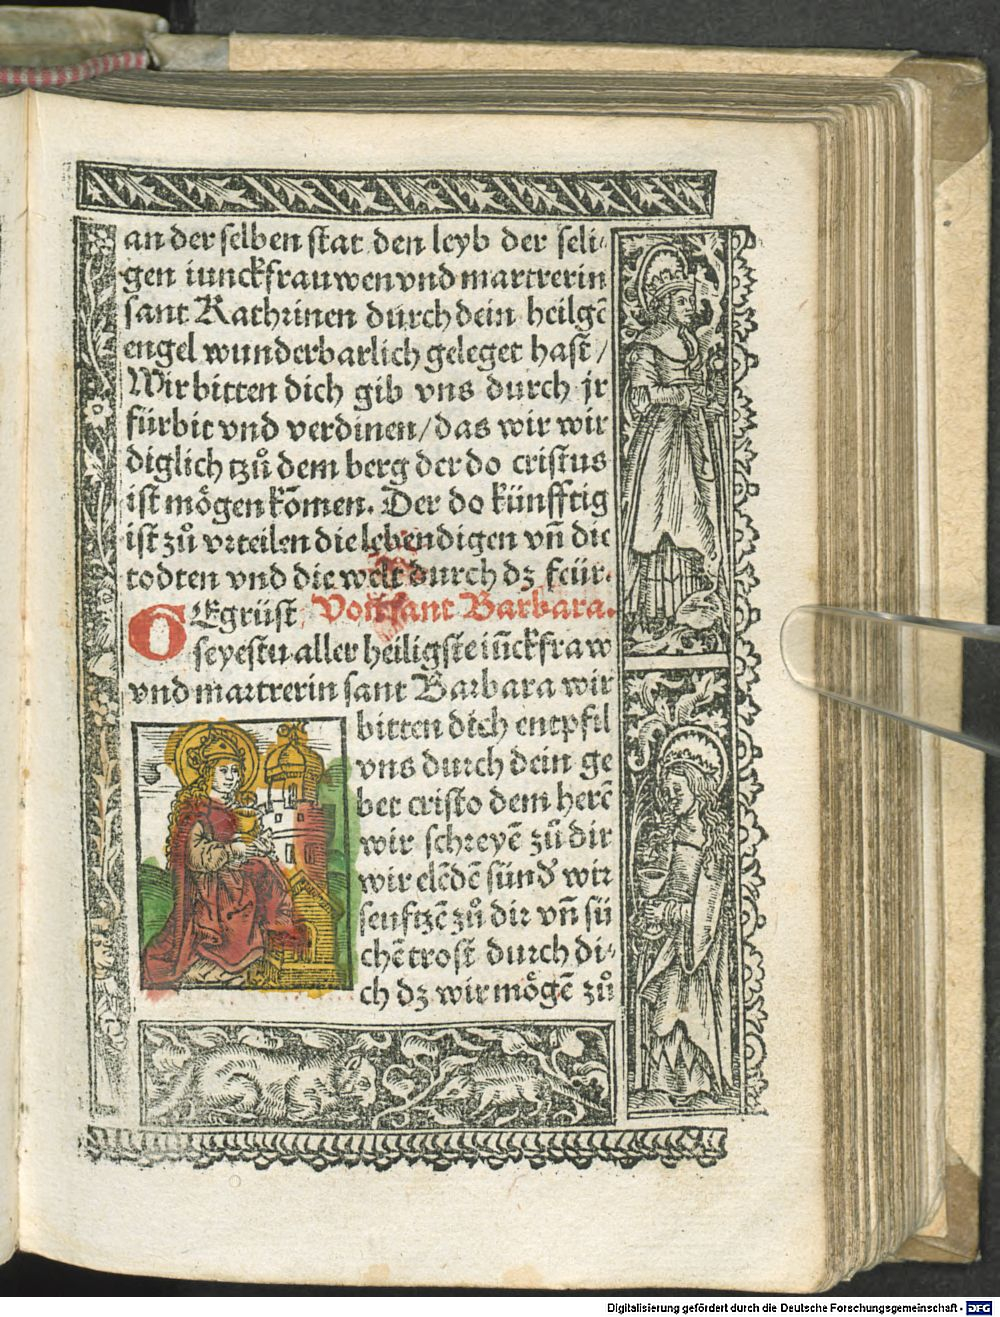 an der selben stat den leyb der seli⸗
gen iunckfrauwen vnd martrerin
sant Kathrinen durch dein heilgē
engel wunderbarlich geleget hast /
Wir bitten dich gib vns durch jr
fürbit vnd verdinen / das wir wir
diglich tzů dem berg der do cristus
ist mögen kōmen. Der do künfftig
ist zů vrteilen die lebendigen vn̄ die
todten vnd die welt durch dz feür.
GEgrüst Von sant Barbara.
seyestu aller heiligste iūckfraw
vnd martrerin sant Barbara wir
bitten dich entpfil
vns durch dein ge
bet cristo dem herē
wir schreyē zů dir
wir elēdē sünd' wir
seufftzē zů dir vn̄ sů
chē trost durch di⸗
ch dz wir mögē zů
Digitalisierung gefördert durch die Deutsche Forschungsgemeinschaft - DFG